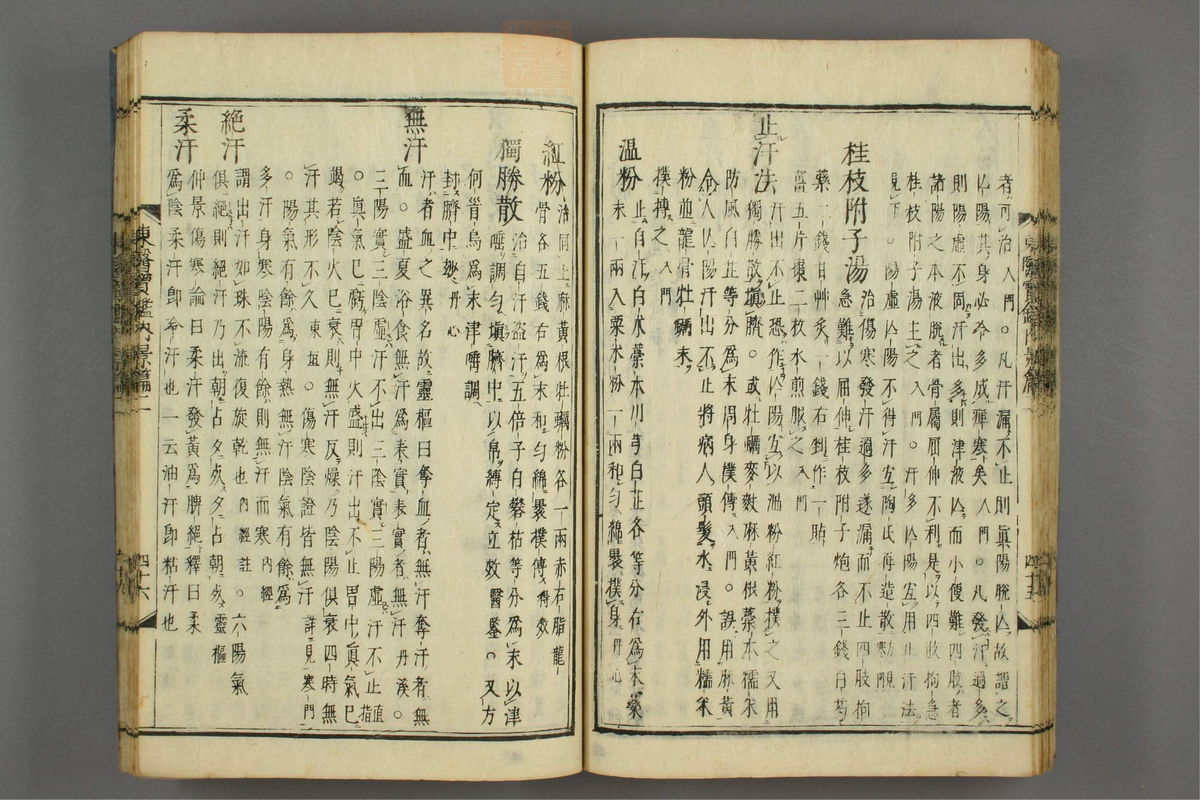 者可治入門○凡汗漏不止則眞陽脫亡故謂之
亡陽其身必冷多成痺寒矣入門○凡發汗過多
則陽虛不固汗出多則津液亡而小便難四肢者
諸陽之本液脫者骨屬屈伸不利是以四肢拘急
桂枝附子湯主之入門○汗多亡陽宜用止汗法
見下○陽虛亡陽不得汗宜陶氏再造散
桂枝附子湯
治傷寒發汗過多遂漏而不止四肢拘
急難以屈伸桂枝附子炮各三錢白芍
藥一錢甘艸灸一錢右剉作一貼
薑五片棗二枚水煎服之入門
止汗法
汗出不止恐作亡陽宜以溫粉紅粉撲之又用
獨勝散塡臍○或牡蠣麥麩麻黃根藁本糯米
防風白芷等分爲末周身撲傅入門○誤用麻黃
令人亡陽汗出不止將病人頭髮水浸外用糯米
粉並龍骨牡蠣末
撲搏之入門
溫粉
止自汗白朮藁本川芎白芷各等分右爲末藥
末一兩入粟米粉一兩和勻綿裹撲身丹心
紅粉
治同上麻黃根牡蠣粉各一兩赤石脂龍
骨各五錢右爲末和勻綿裹撲傅得效
獨勝散
治自汗盜汗五倍子白礬枯等分爲末以津
唾調勻塡臍中以帛縛定立效醫鑒○又方
何首烏爲末津唾調
封臍中妙丹心
無汗
汗者血之異名故靈樞曰奪血者無汗奪汗者無
血○盛夏浴食無汗爲表實表實者無汗丹溪○
三陽實三陰虛汗不出三陰實三陽虛汗不止直指
○眞氣已虧胃中火盛則汗出不止胃中眞氣已
竭若陰火已衰則無汗反燥乃陰陽俱衰四時無
汗其形不久東垣○傷寒陰證皆無汗詳見寒門
○陽氣有餘爲身熱無汗陰氣有餘爲
多汗身寒陰陽有餘則無汗而寒內經
絕汗
謂出汗如珠不流復旋乾也內經註○六陽氣
俱絕則絕汗乃出朝占夕死夕占朝死靈樞
柔汗
仲景傷寒論曰柔汗發黃爲脾絕釋曰柔
爲陰柔汗卽冷汗也一云油汗卽粘汗也
東醫寶鑑內景篇二
四十五
四十六